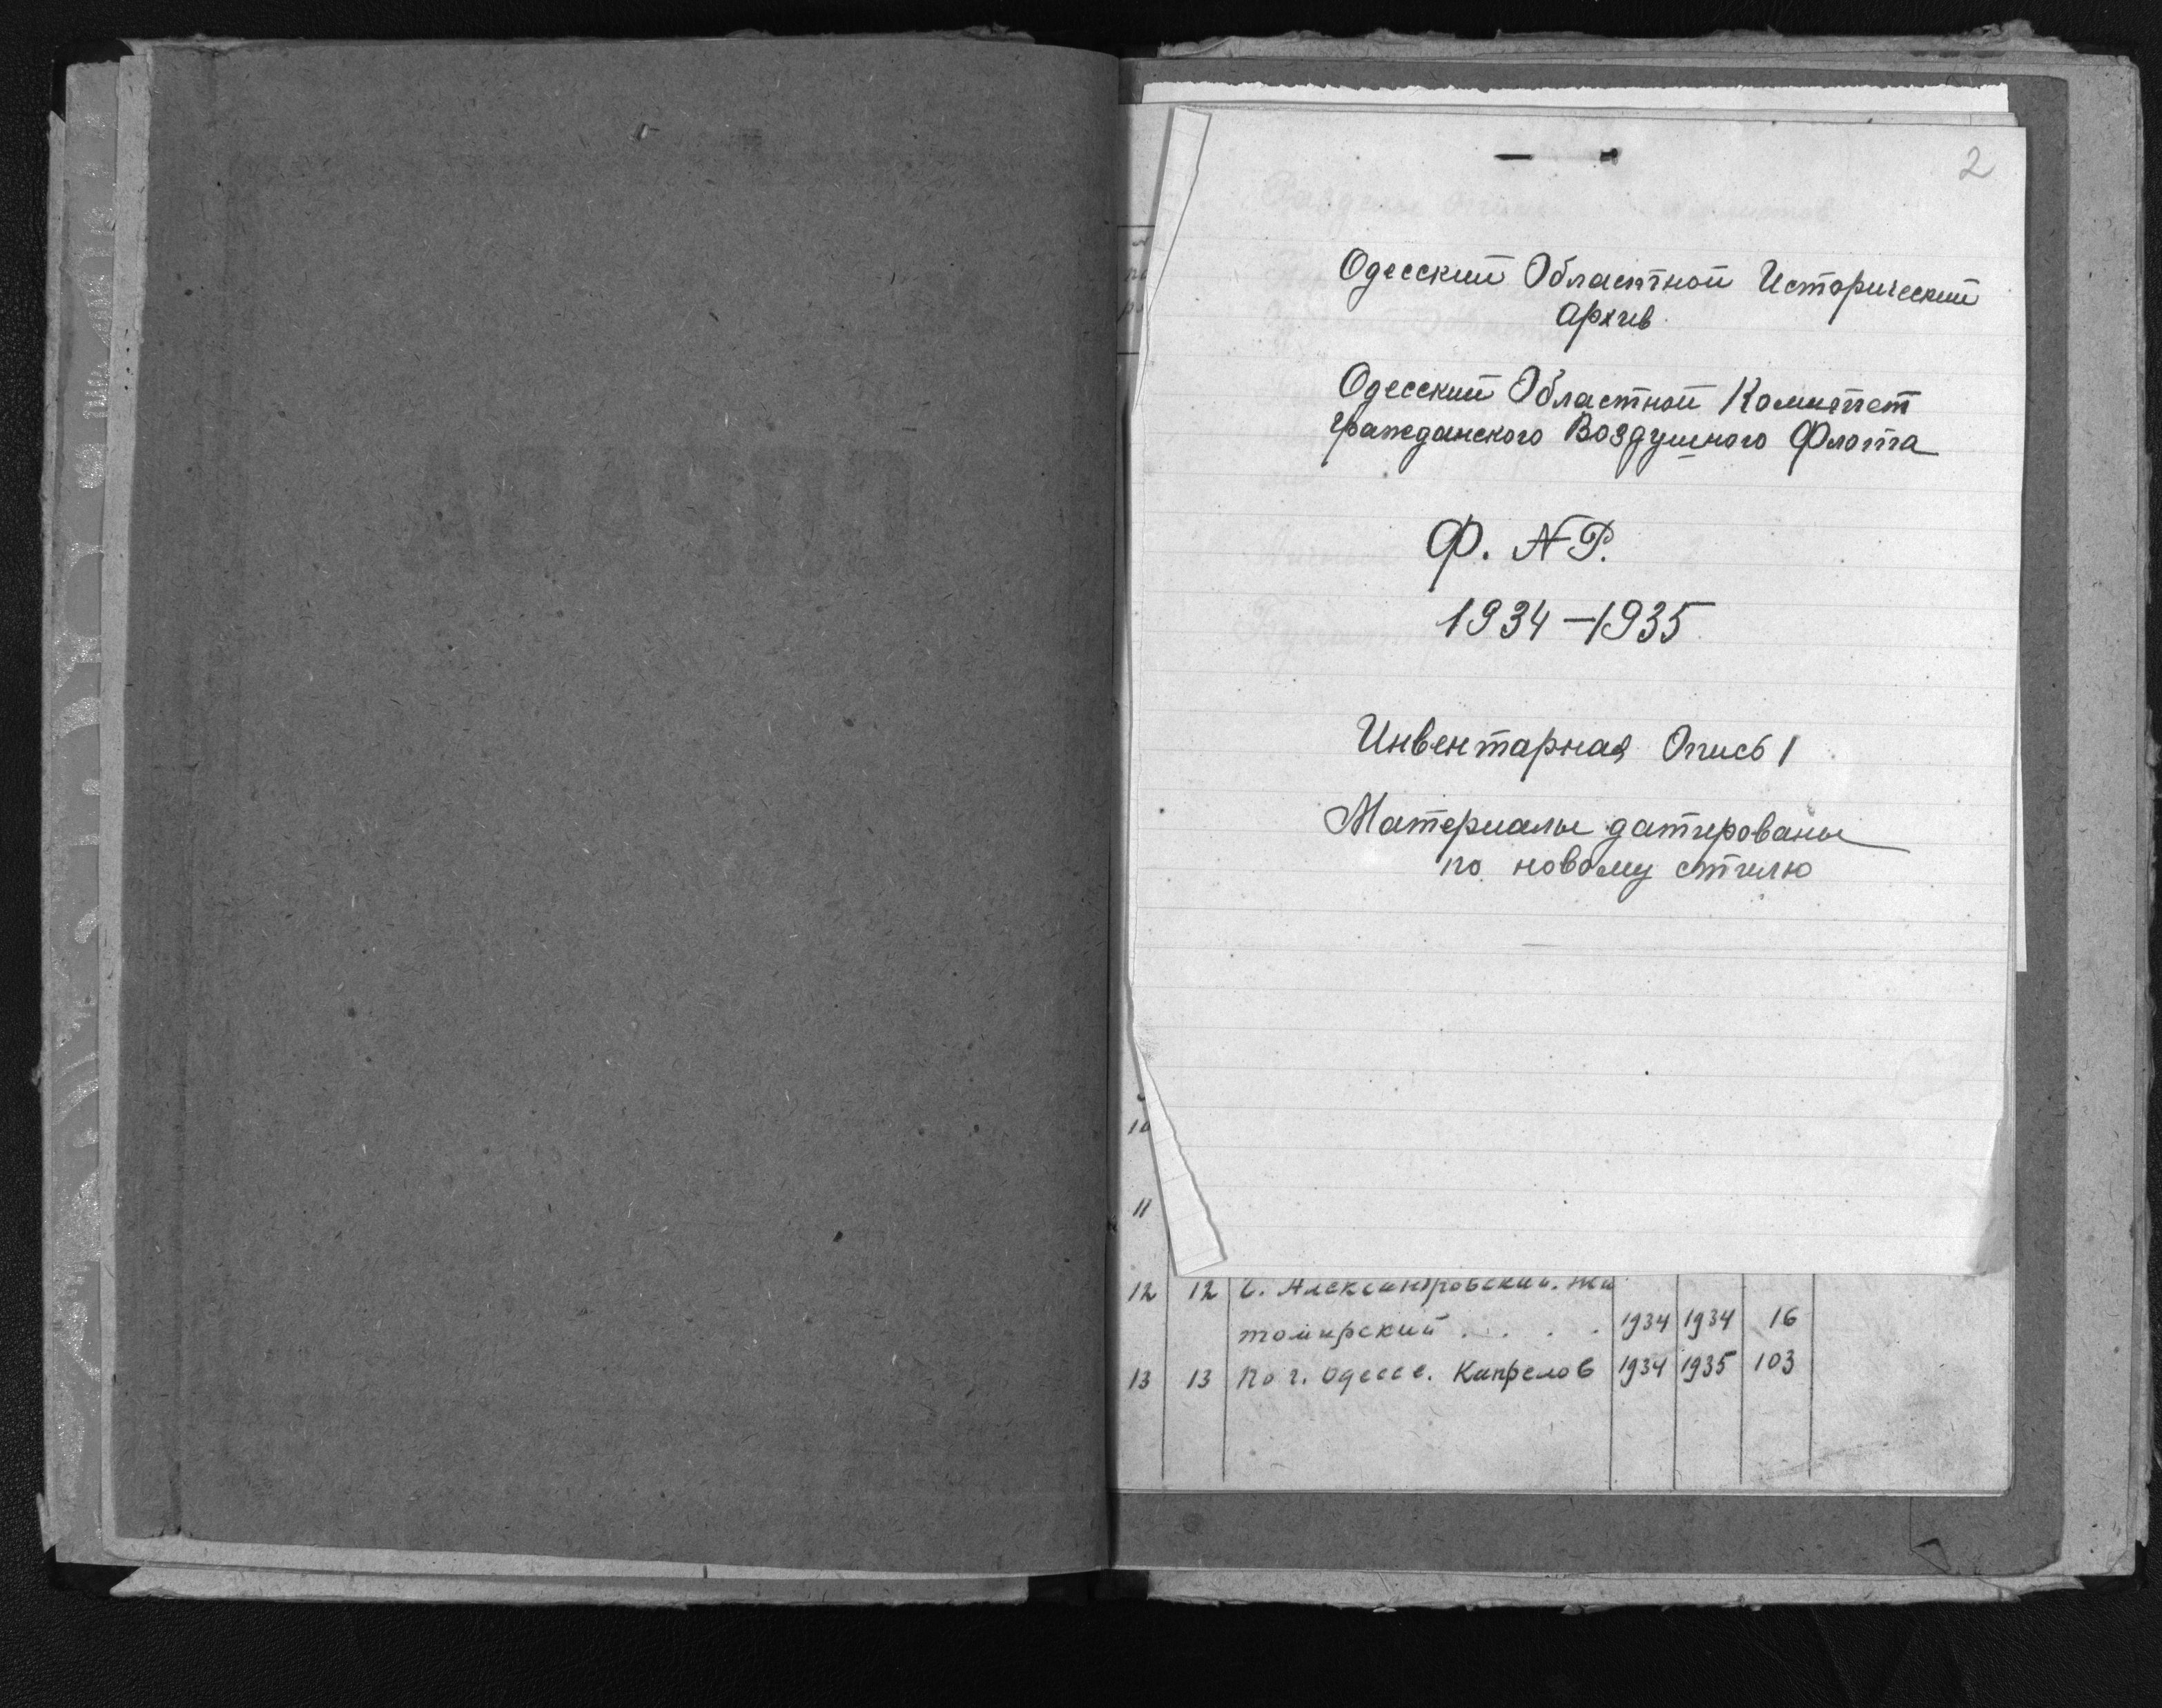 2
Одесский Областной Исторический
Архив
Одесский Областной Комитет
Гражданского Воздушного Флота
Ф. № Р.
1934-1935
Инвентарная Опись 1
Материалы датированы
по новому стилю
10
11
12 12 С. Александровский. Жи
томирский . . . . 1934 1934 16
13 13 По г. Одессе. Капрелов 1934 1935 103